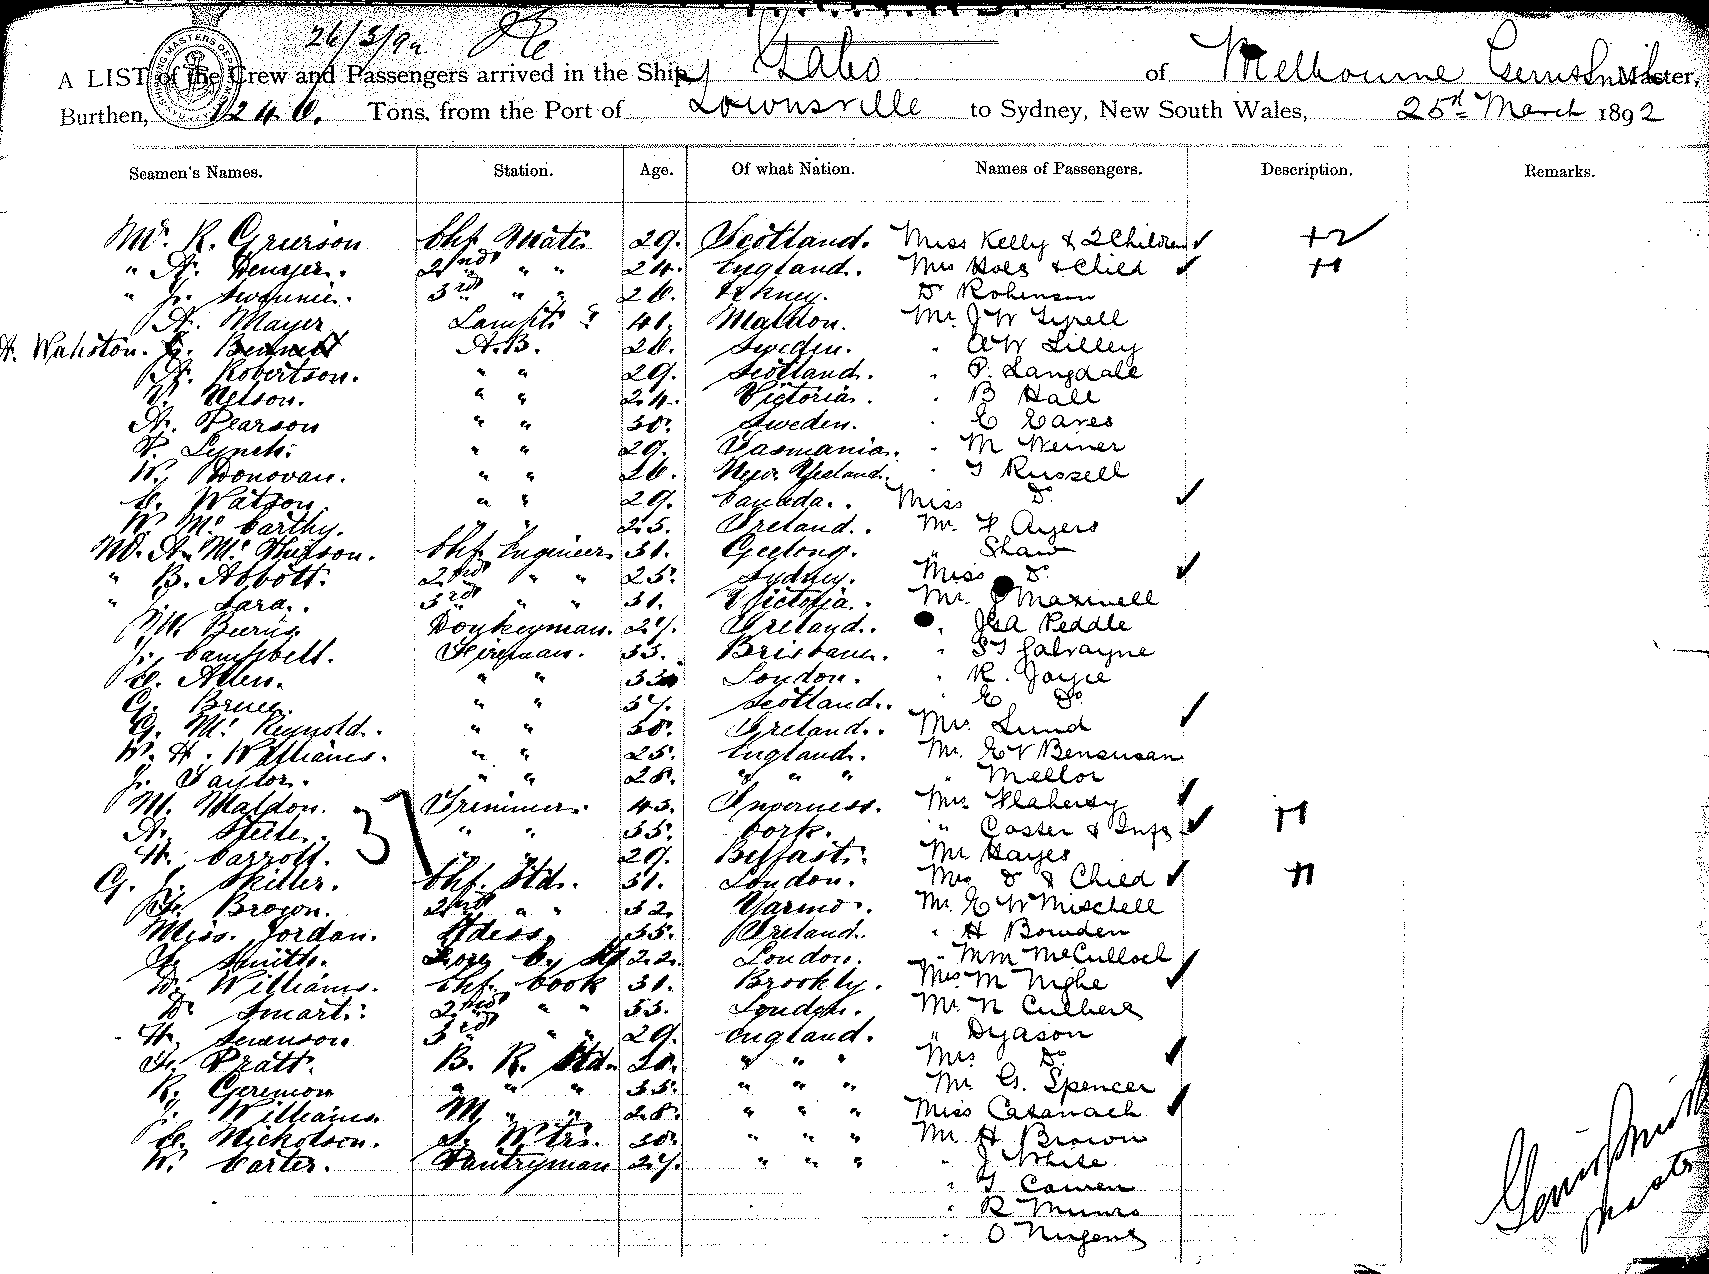 26/3/92
A LIST of the Crew and Passengers arrived in the Ship, Gabo of Melbourne Master,
Burthen, 1240. Tons, from the Port of Townsville to Sydney, New South Wales, 25th March 1892
Seamen's Names. Station. Age. Of what Nation. Names of Passengers. Description. Remarks.
Mr. R. Grierson Chf. Mate. 29. Scotland. Miss Kelly & 2 Children
" A. 2nd " " 24. England. Mrs & Child
" J. 3rd " " 26. Dr Robinson
A. Mayer Lamps 41. Maldon. Mr. J W Tyrell
A. Wahston. A.B. 26. Sweden. " A W Lilley
A. Robertson. " " 29. Scotland. " P. Langdale
Nelson. " " 24. Victoria. " B Hall
A. Pearson " " 30. Sweden. " E Eaves
P. Lynch. " " 29. Tasmania. " M Weiner
W. Donovan. " " 26. New Zealand. " T Russell
C. Watson " " 29. Canada. Miss Do
W. Mc. Carthy. " " 25. Ireland. Mr. F Ayers
Mr. A. Mc. Chf. Engineer 31. Geelong. " Shaw
" B. Abbott. 2nd " " 25. Sydney. Miss Do
" Lara. 3rd " " 31. Victoria. Mr. J Maxwell
Donkeyman. 27. Ireland. " Peddle
J. Campbell. Fireman. 33. Brisbane. " Galvayne
C. Allen. " " 33 London. " R. Joyce
G. Bruce. " " 37. Scotland. " E Do
G. Mc. Reynold. " " 30. Ireland. Mrs. Lund
W. H. Williams. " " 25. England. Mr. E V Bensusan
J. Taylor. " " 28. " " " " Mellor
M. Maldon. Trimmer. 43. Inverness. Mrs Flaherty
A. Steele. " " 35. Cork. " Coster & Inft
H. Carroll. " " 29. Belfast. Mr Hayes
G. J. Skiller. Chf. Std. 31. London. Mrs Do & Child
Brown. 2nd " " 32. Mr. E W Mitchell
Miss. Jordan. Stdess. 35. Ireland. " H Bowden
Smith. 22. London. " McCulloch
D. Williams. Chf. Cook 31. Brookly. Mrs. M Nighe
D. Smart. 2nd " " 33. London. Mr. N
H. Swanson 3rd " " 29. England. " Dyason
F. Pratt. B. R. Std. 20. " " " Mrs Do
R. " " " 35. " " " Mr G. Spencer
J. Williams. M " " 28. " " " Miss Catanach
C. Nickolson. S. Wtrs. 30. " " " Mr. H Brown
W. Carter. Pantryman 27. " " " " J White
" T Cowen
" R Munro
" O Nugent